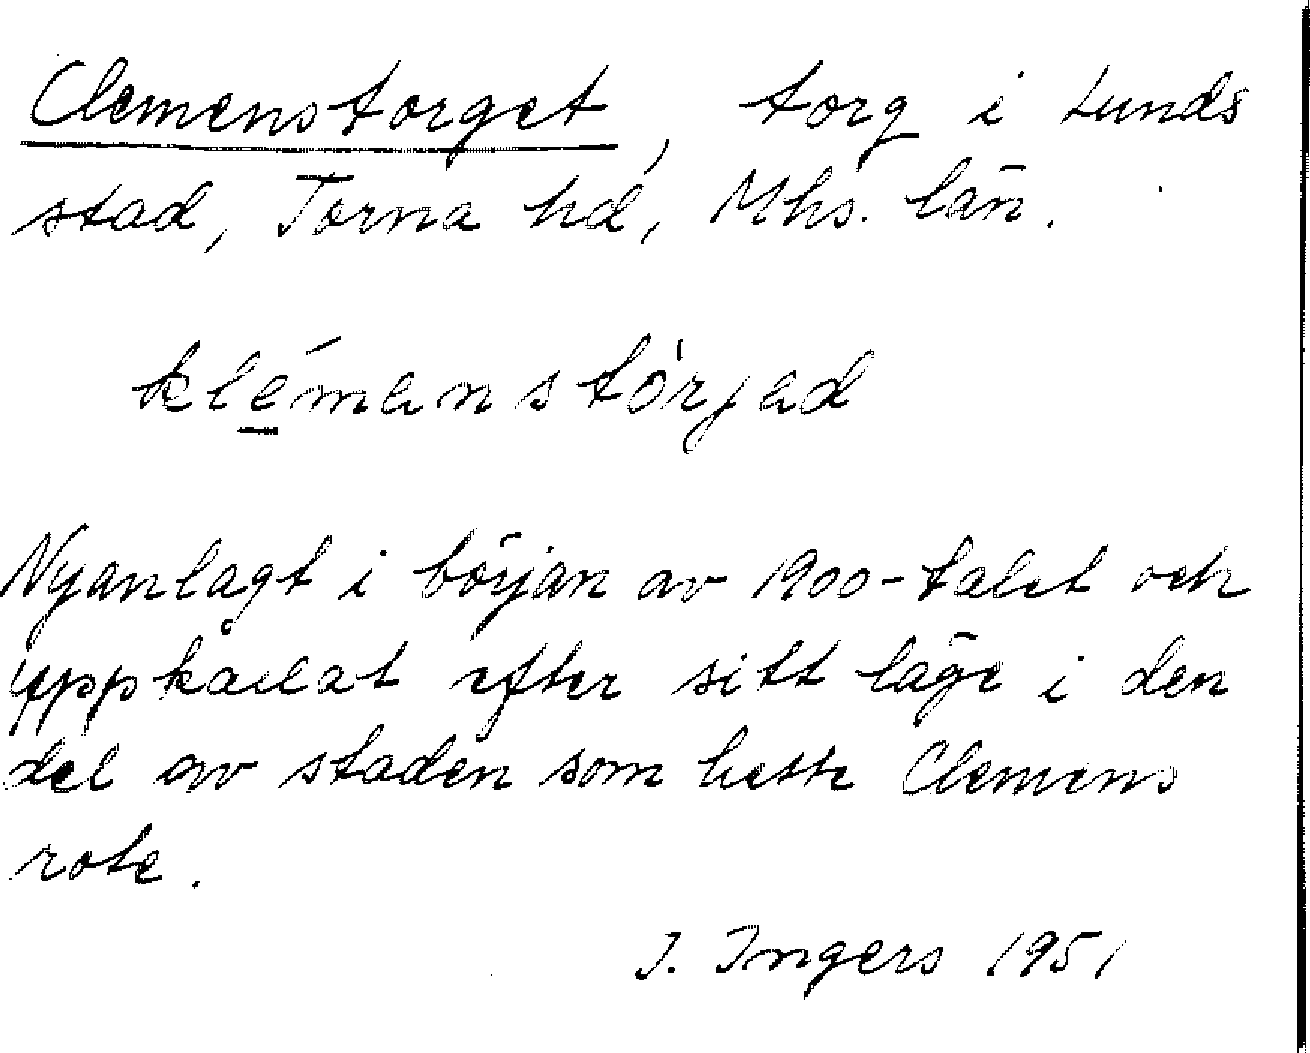 Clemenstorget, torg i Lunds
stad, Torna hd, Mhs. län.
klémanstòrjad
Nyanlagt i början av 1900-talet och
uppkallat efter sitt läge i den
del av staden som hette Clemens
rote.
I. Ingers 1951